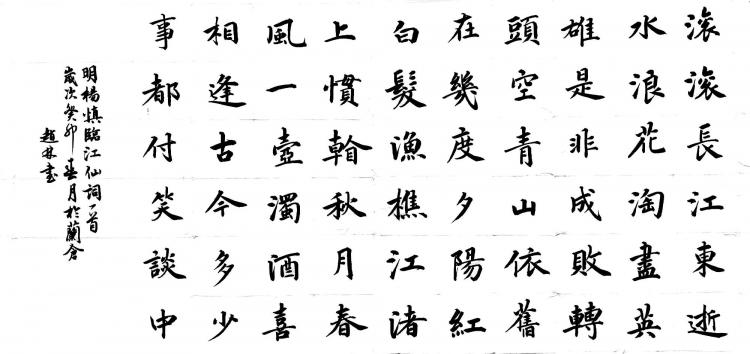 滚滚長江東逝
水浪花淘盡英
雄是非成敗轉
頭空青山依舊
在幾度夕陽紅
白髮漁樵江渚
上慣看秋月春
風一壺濁酒喜
相逢古今多少
事都付笑談中
明楊慎臨江仙詞一首
歲次癸卯春月於蘭倉
趙林書